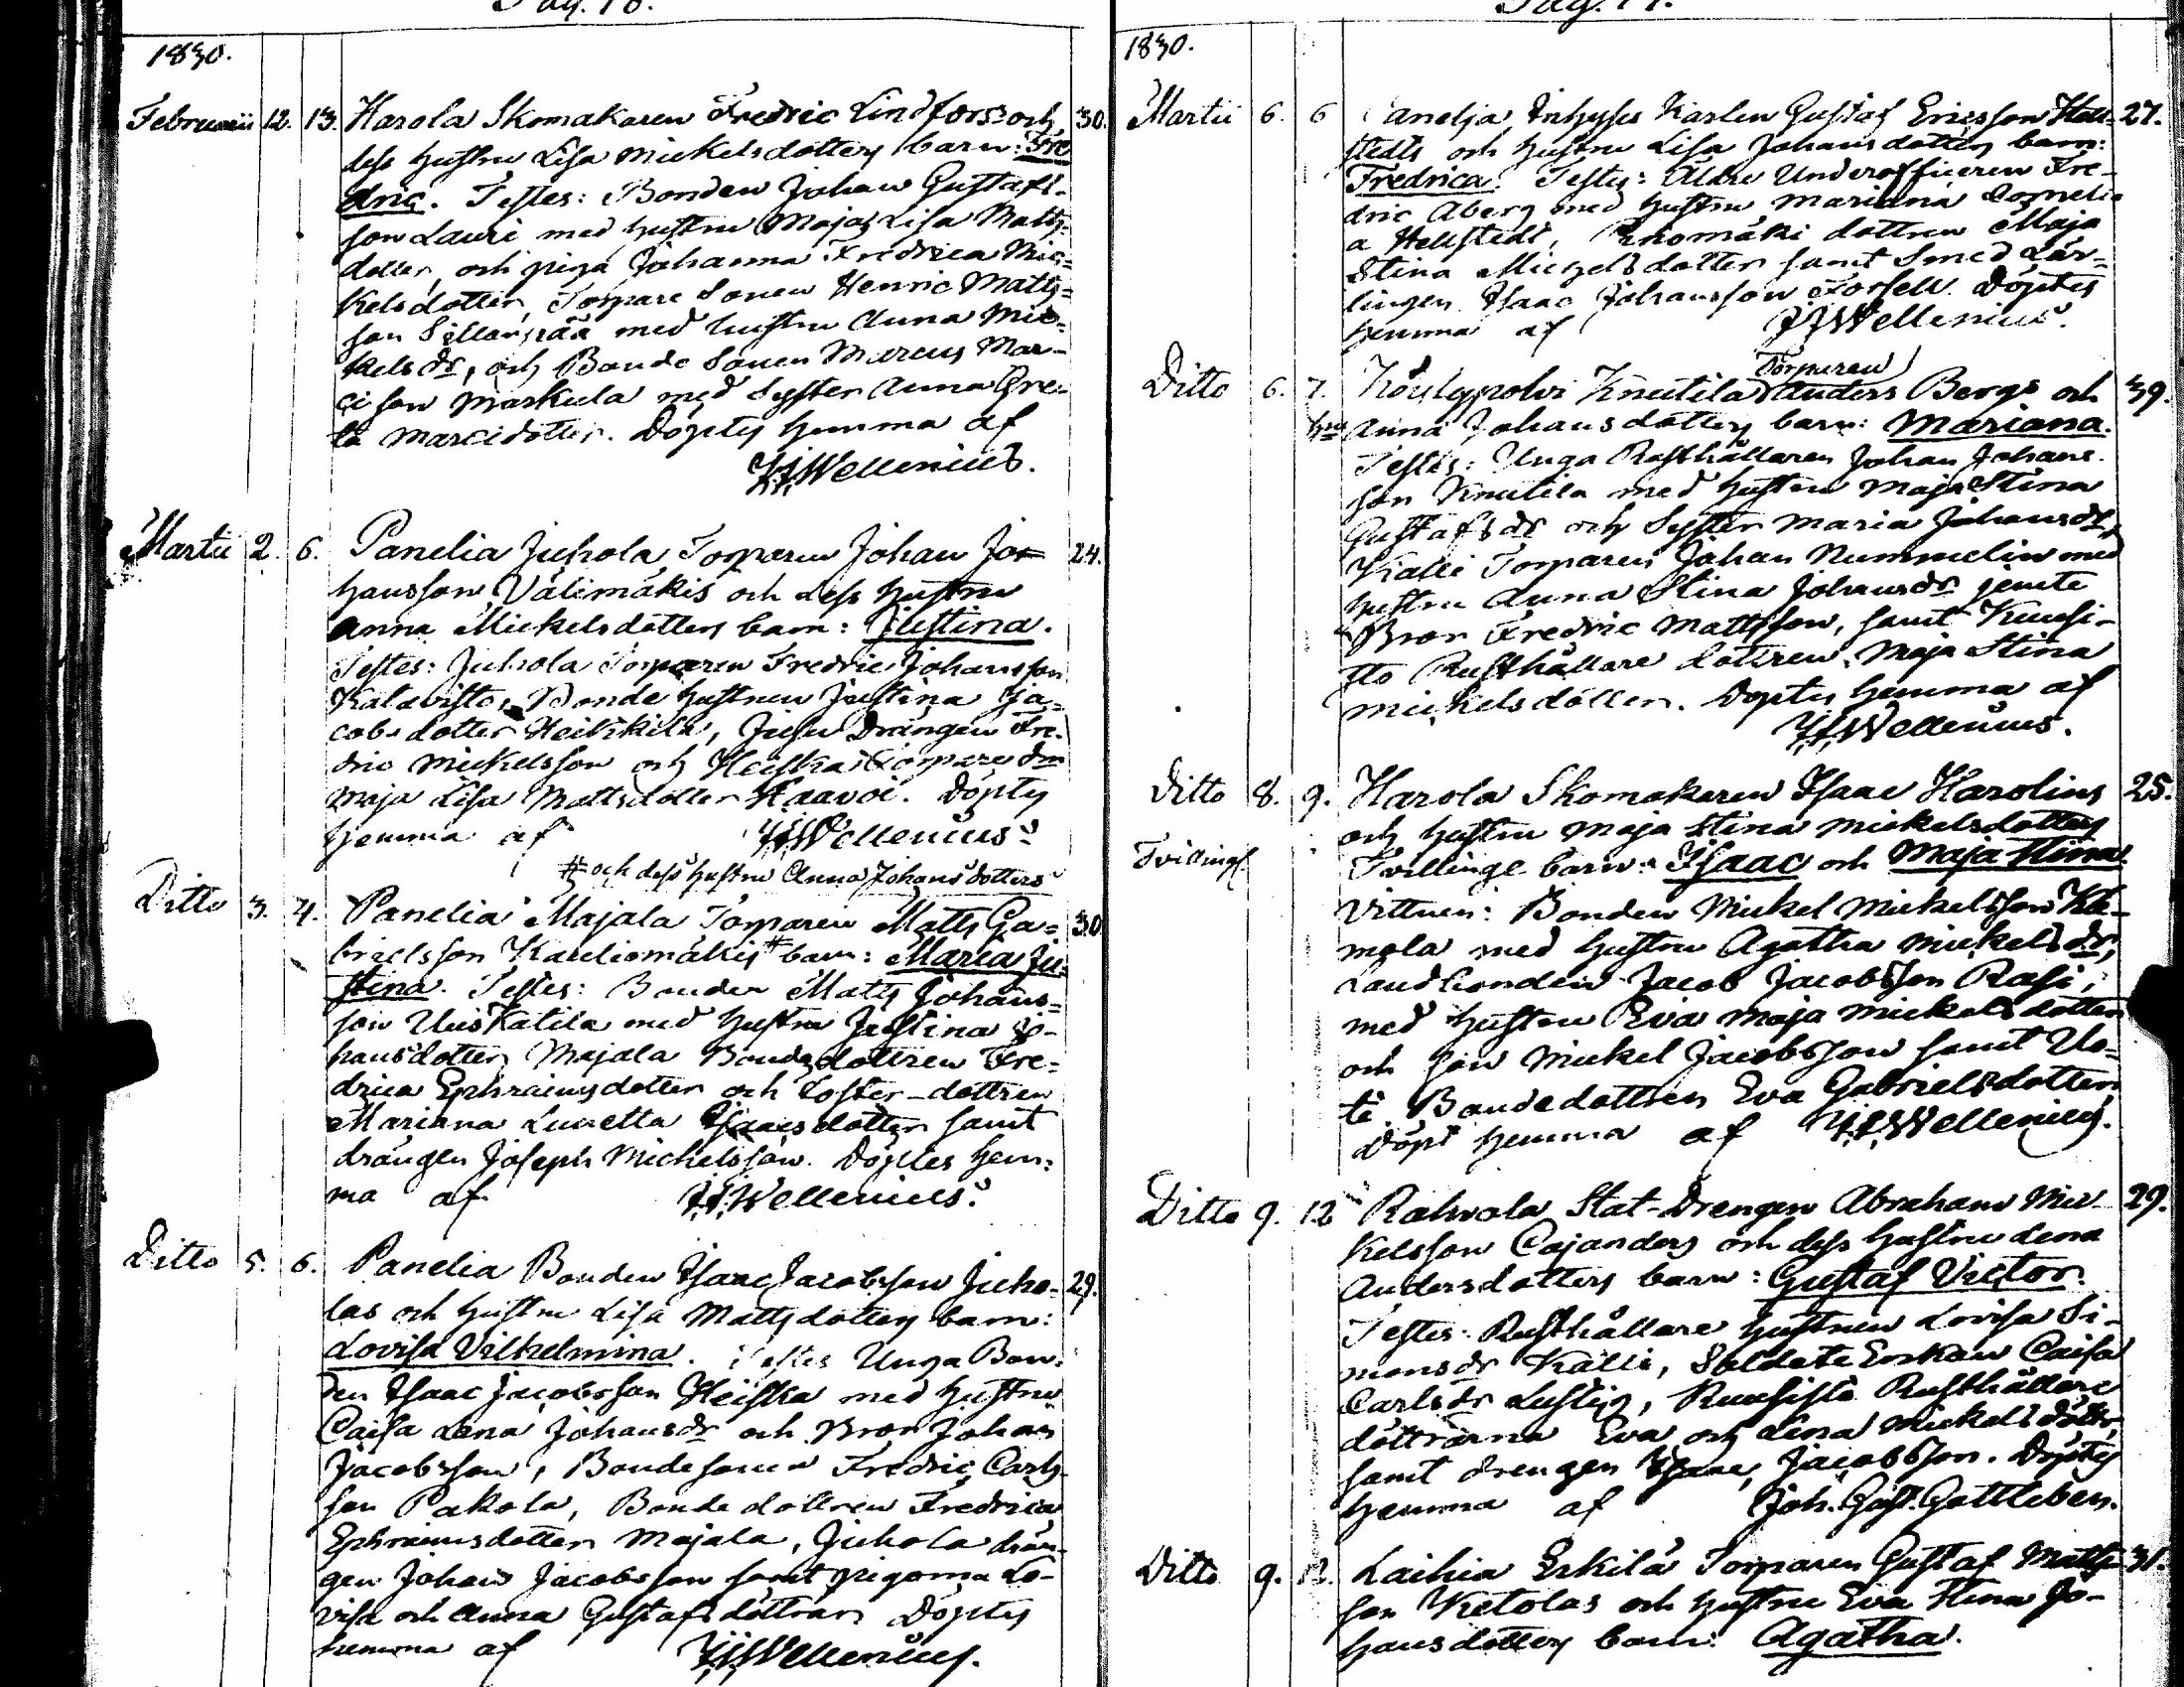 Pag. 18.
1830.
Februarii 12. 13. Harola Skomakaren Fredric Lindfors och 30.
dess hustru Lisa Mickelsdotters barn: Fre
dric. Testes: Bonden Johan Gustafs-
son Lauri med hustru Maja Lisa Matts-
dotter, och piga Johanna Fredrica Mic-
kelsdotter, Torpare Sonen Henric Matts-
son Sillanpää med hustru Anna Mic-
kels dr, och Bonde Sonen Marcus Mar-
ci son Markula med Syster Anna Gre-
ta Marcidotter. Döptes hemma af
JJWellenius.
Martii 2. 6. Panelia Juhola Torparen Johan Jo- 24.
hansson Välimäkis och dess hustru
Anna Mickelsdotters barn: Justina.
Testes: Juhola Torparen Fredric Johansson
Bonde hustrun Justina Ja-
cobs dotter Heikkilä, Drängen Fre-
dric Mickelsson och Heiska Torpare dr
Maja Lisa Mattsdotter Haavoi. Döptes
hemma af JJWellenius.
# och dess hustru Anna Johans dotters
Ditto 3. 4. Panelia Majala Torparen Matts Ga- 30
brielsson Kareliomäkis # barn: Maria Ju-
stina. Testes: Bonden Matts Johans-
son Uuskatila med hustru Justina Jo-
hansdotter, Majala Bonde dottren Fre-
drica Ephraimsdotter och Foster-dottren
Mariana Lucretta Isaacsdotter samt
drängen Joseph Mickelsson. Döptes hem-
ma af JJWellenius.
Ditto 5. 6. Panelia Bonden Isaac Jacobsson Juho- 29.
las och hustru Lisa Mattsdotters barn:
Lovisa Vilhelmina. Testes Unga Bon-
den Isaac Jacobsson Heiska med hustru
Caisa Lena Johans dr och Bror Johan
Jacobsson, Bondesonen Fredric Carls-
son Pakola, Bonde dottren Fredrica
Ephraimsdotter Majala, Juhola drän-
gen Johan Jacobsson samt pigorna Lo-
visa och Anna Gustafs döttrar. Döptes
hemma af JJWellenius.
1830.
Martii 6. 6 Panelja Inhyses Karlen Gustaf Ericsson Hell- 27.
stedts och hustru Lisa Johansdotters barn:
Fredrica. Testes: Äldre Underofficeren Fre-
dric Åberg med hustru Mariana Corneli-
a Hellstedt, dottren Maja
Stina Mickelsdotter samt Smed Lär-
lingen Isaac Johansson Forsell. Döptes
hemma af JJWellenius.
Torparen
Ditto 6. 7. Köylypolvi Knutila Anders Bergs och 39.
hu Anna Johansdotters barn: Mariana.
Testes: Unga Rusthållaren Johan Johans-
son Knutila med hustru Maja Stina
Gustafs dr och Syster Maria Johans dr,
Kalli Torparen Johan Nummelin med
hustru Anna Stina Johans dr jemte
Bror Fredric Mattsson, samt Kuusi-
sto Rusthållare dottren Maja Stina
Mickelsdotter. Döptes hemma af
JJWellenius.
Ditto 8. 9. Harola Skomakaren Isaac Harolins 25.
och hustru Maja Stina Mickelsdotters
Tvilling. Tvillinge barn: Isaac och Maja Stina
Vittnen: Bonden Mickel Mickelsson
mola med hustru Agatha Mickels dr,
Landbonden Jacob Jacobsson Rasi,
med hustru Eva Maja Mickelsdotter
och son Mickel Jacobsson samt Uo-
ti Bondedottren Eva Gabrielsdotter,
Döpt hemma af JJWellenius.
Ditto 9. 12 Rahvola Stat-Drengen Abraham Mic- 29.
kelsson Cajanders och dess hustru Lena
Andersdotters barn: Gustaf Victor.
Testes: Rusthållare hustrun Lovisa Si-
mons dr Källi, Soldate Enkan Caisa
Carls dr Lustig, Kuusisto Rusthållare
döttrarna Eva och Lena Mickels döttr.
samt drengen Isaac Jacobsson. Döptes
hemma af Joh. Gust. Gottleben.
Ditto 9. 12. Laihia Erkilä Torparen Gustaf Matts- 31.
son Ketolas och hustru Eva Stina Jo-
hansdotters barn: Agatha.